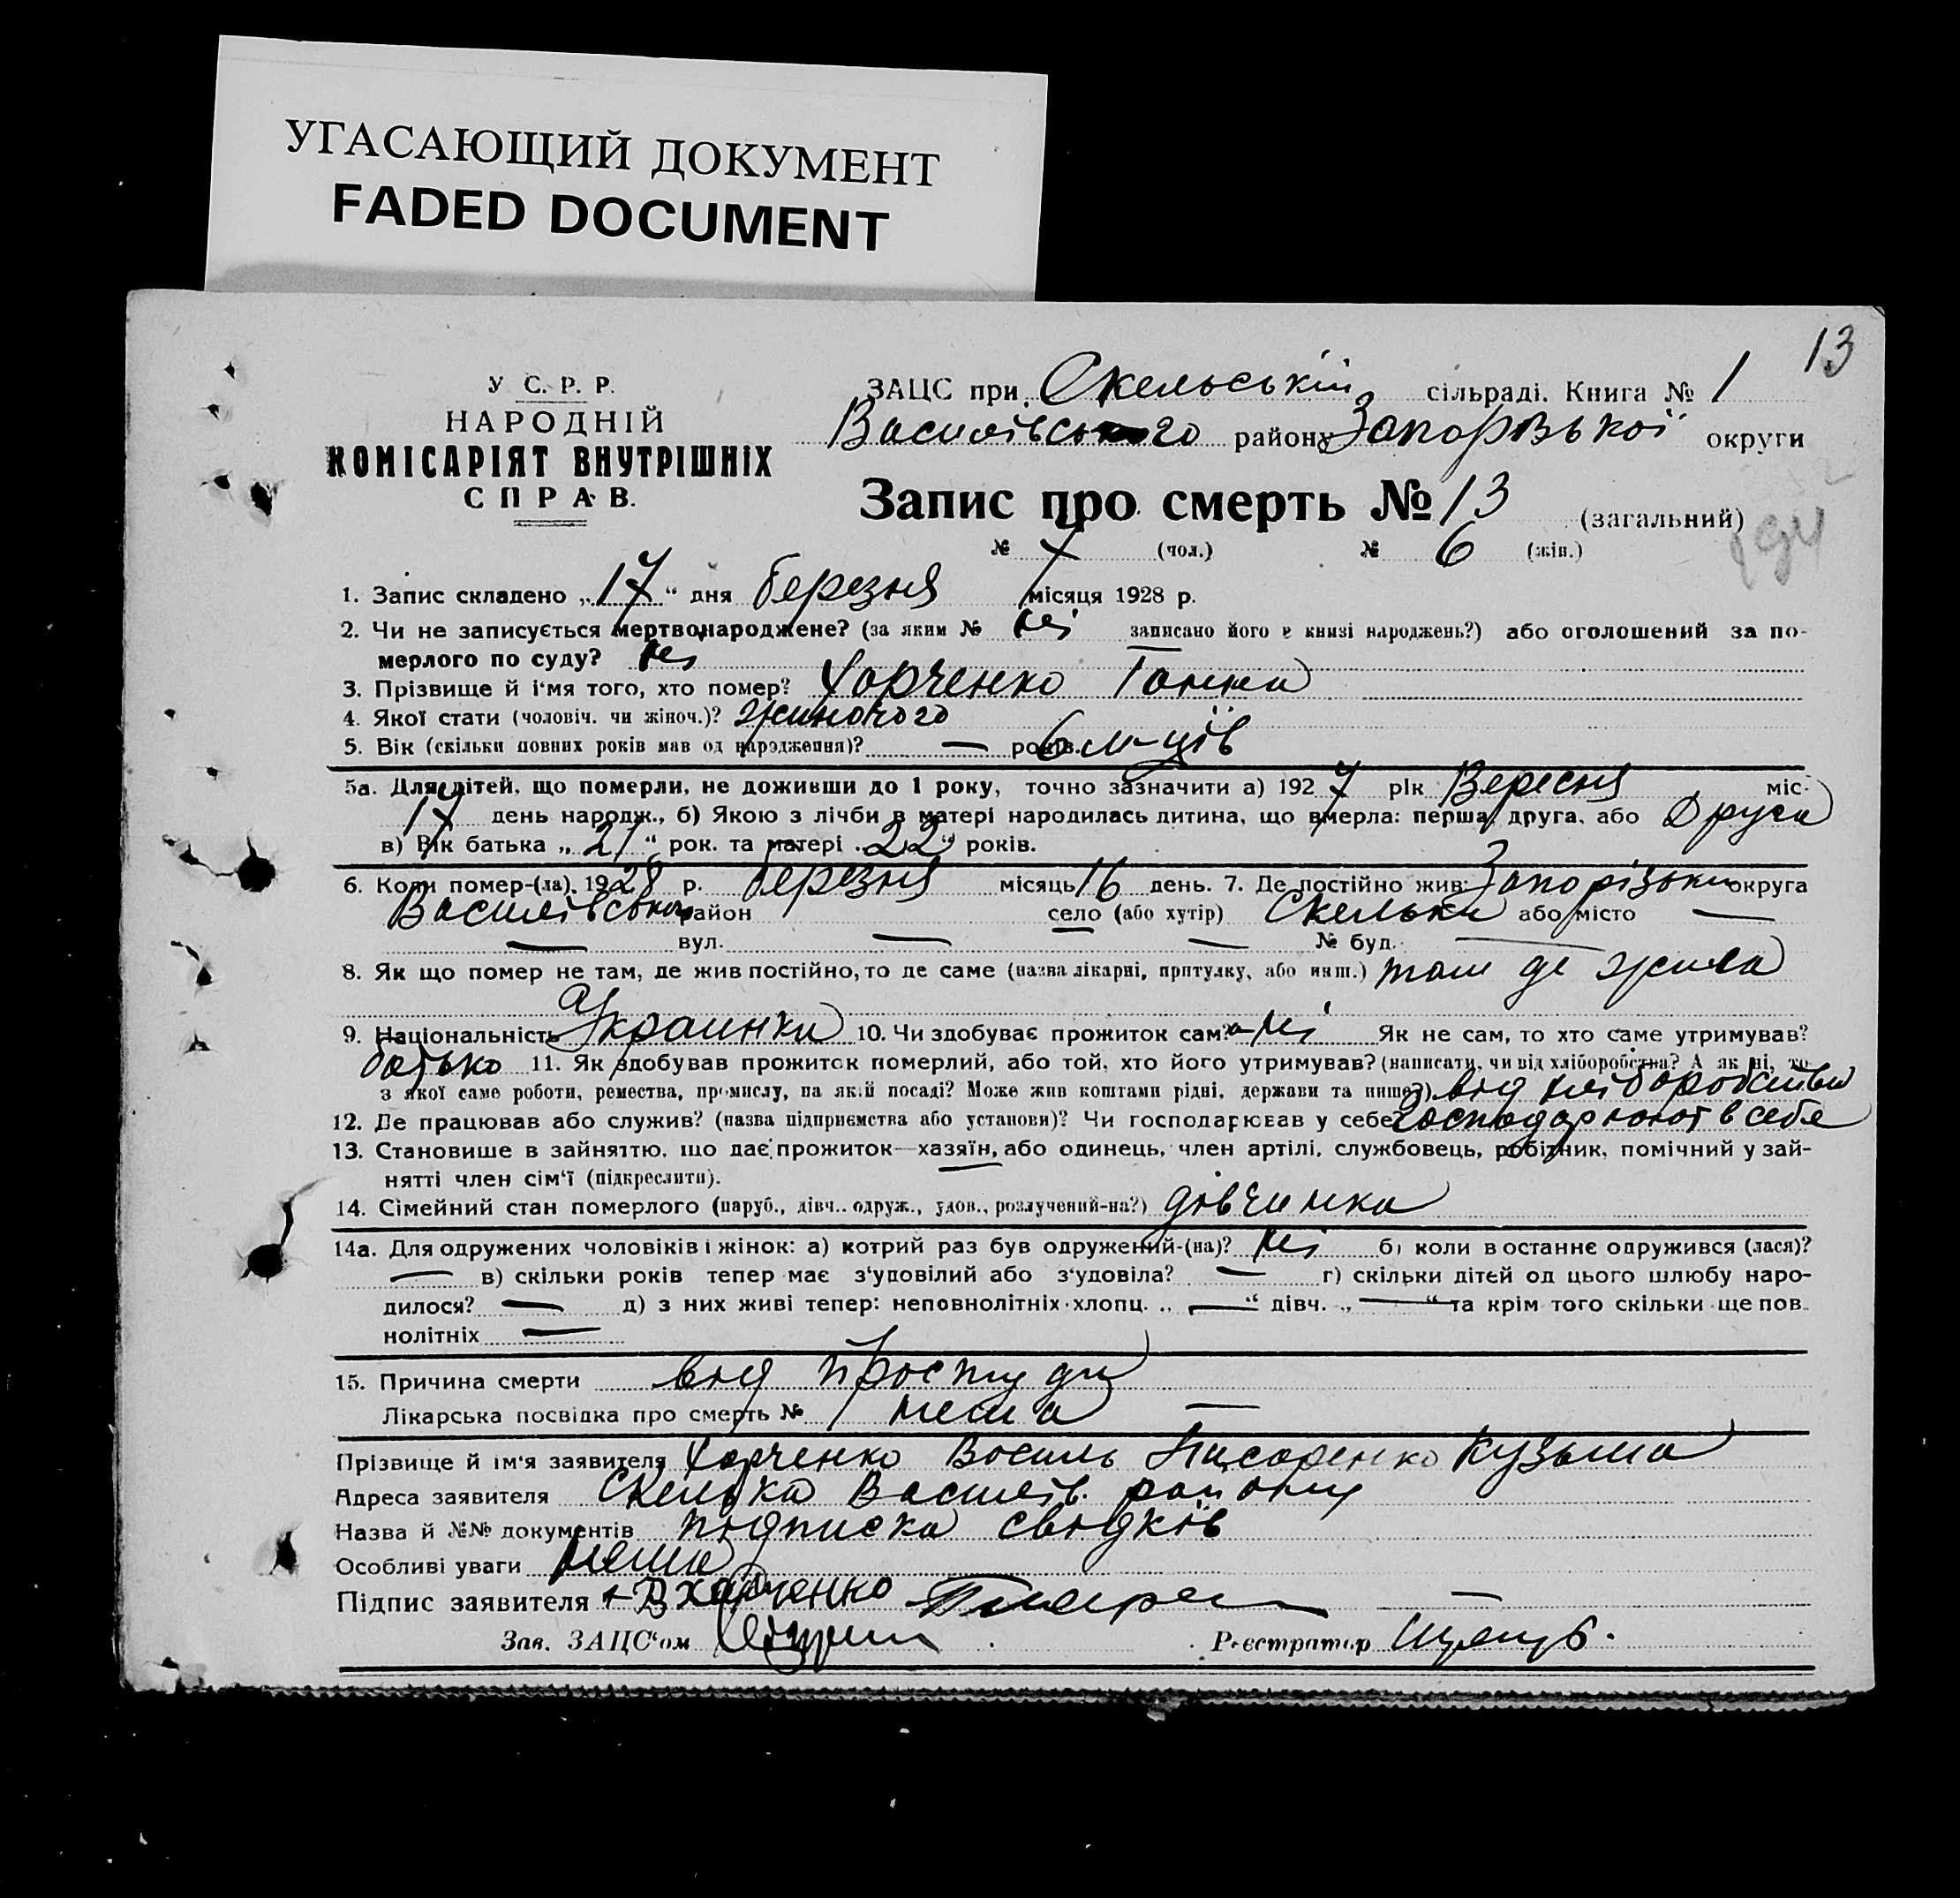 УГАСАЮЩИЙ ДОКУМЕНТ
FADED DOCUMENT
13
У С. Р. Р.
НАРОДНІЙ
КОМІСАРІЯТ ВНУТРІШНІХ
СПРАВ.
ЗАЦС при Скельській сільраді. Книга № 1
Василівського району Запорізької округи
Запис про смерть № 13 (загальний)
№ 7 (чол.) № 6 (жін.)
1. Запис складено „17“ дня березня місяця 1928 р.
2. Чи не записується мертвонароджене? (за яким № ні записано його в книзі народжень?) або оголошений за по-
мерлого по суду? ні
3. Прізвище й і‘мя того, хто помер? Харченко Ганна
4. Якої стати (чоловіч. чи жіноч.)? жиночого
5. Вік (скільки повних років мав од народження)? — років. 6 м-ців
5а. Для дітей, що померли, не доживши до 1 року, точно зазначити а) 1927 рік Вересня міс.
17 день народж., б) Якою з лічби в матері народилась дитина, що вмерла: перша, друга, або Друга
в) Вік батька „21“ рок. та матері „22“ років.
6. Коли помер-(ла). 1928 р. березня місяць 16 день. 7. Де постійно жив: Запорізька округа
Василівського район село (або хутір) Скельки або місто —
— вул. — — № буд. —
8. Як що помер не там, де жив постійно, то де саме (назва лікарні, притулку, або инш.) там де жила
9. Національність Украинка 10. Чи здобував прожиток сам? ні Як не сам, то хто саме утримував?
батько 11. Як здобував прожиток померлий, або той, хто його утримував? (написати, чи від хліборобства? А як ні, то
з якої саме роботи, ремества, промислу, на якій посаді? Може жив коштами рідні, держави та инше?) від хліборобства
12. Де працював або служив? (назва підприємства або установи)? Чи господарював у себе? господарюют в себе
13. Становише в зайняттю, що дає прожиток—хазяїн, або одинець, член артілі, службовець, робітник, помічний у зай-
нятті член сім‘ї (підкреслити).
14. Сімейний стан померлого (паруб., дівч.. одруж., удов., розлучений-на?) дівчинка
14а. Для одружених чоловіків і жінок: а) котрий раз був одружений-(на)? ні б) коли в останнє одружився (лася)?
— в) скільки років тепер має з‘уповілий або з‘удовіла? — г) скільки дітей од цього шлюбу наро-
дилося? — д) з них живі тепер: неповнолітніх хлопц. „—“ дівч. „—“ та крім того скільки ще пов-
нолітніх —
15. Причина смерти від простуди
Лікарська посвідка про смерть № нема —
Прізвище й ім‘я заявителя Харченко Василь Писаренко Кузьма
Адреса заявителя Скелька Василів. району
Назва й №№ документів підписка свідків
Особливі уваги нема
Підпис заявителя + В Харченко
Зав. ЗАЦС‘ом
Реєстратор